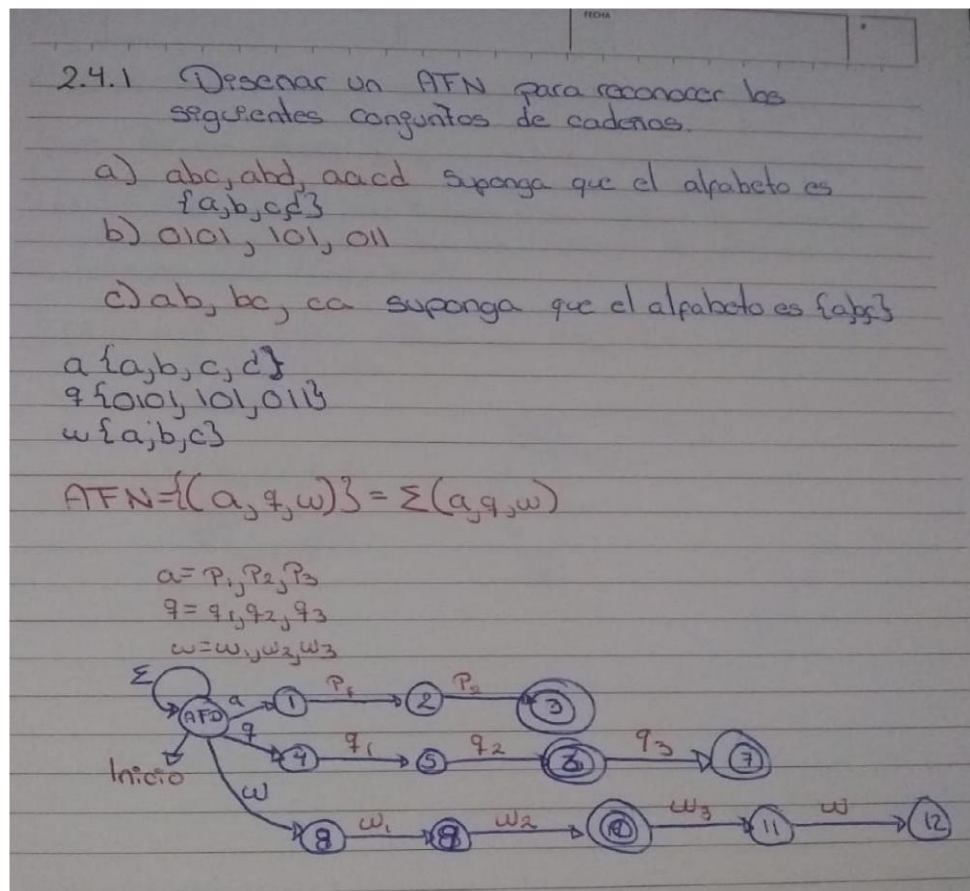 FECHA
2.4.1 Diseñar un AFN para reconocer los
siguientes conjuntos de cadenas.
a) abc, abd, aacd suponga que el alfabeto es
{a,b,c,d}
b) 0101, 101, 011
c) ab, bc, ca suponga que el alfabeto es {a,b,c}
a {a,b,c,d}
q {0101, 101, 011}
w {a,b,c}
AFN={(a,q,w)} = Σ(a,q,w)
a= P1, P2, P3
q= q1, q2, q3
w=w1,w2,w3
Σ
AFD a 1 P1 2 P2 3
q 4 q1 5 q2 6 q3 7
Inicio
w 8 w1 9 w2 10 w3 11 w 12